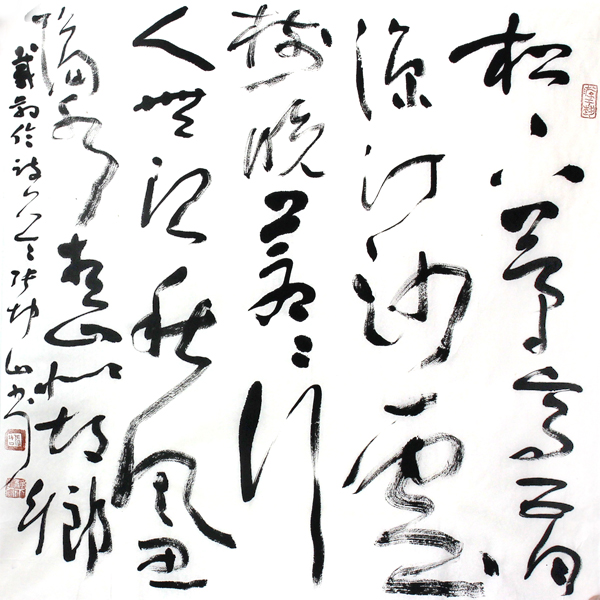 松下茅亭五月
涼汀沙雲
樹晚蒼蒼行
人無限秋風思
隔水青山似故鄉
戴叔倫詩 張坤山書